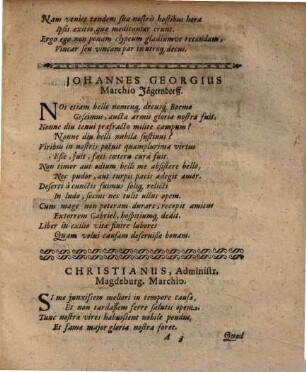 Nam veniet tandem sua nostris hostibus hora
Ipsis exitio, quæ meditantur erunt.
Ergo ego non ponam clypeum gladiumve recondam,
Vincar seu vincam par in utroq; decus.
JOHANNES GEORGIUS
Marchio Jägendorff.
NOs etiam bello nomenq; decusq; Boemo
Gessimus, aucta armis gloria nostra fuit.
Nonne diu tenui prafracto milite campum?
Nonne diu belli nobila sustinui?
Viribus in nostris potuit quamplurima virtus
Esse, fuit, fati cætera cura fuit.
Non timor aut odium belli me absistere bello,
Nec pudor, aut turpis pacis adegit amor.
Deserti à cunctis fuimus soliq; relicti
In ludo, socius nec tulit ullus opem.
Cum mage non poteram durare, recepit amicus
Extorrem Gabriel, hospitiumq; dedit.
Liber in exilio vitæ finire labores
Quam volui causam deseruisse bonam.
CHRISTIANUS, Administr.
Magdeburg. Marchio.
SI me junxissem meliori in tempore causæ,
Et non tardassem ferre salutis opem.
Tunc nostræ vires habuissent nobile pondus,
Et fama major gloria nostra foret.
A 3 Quod